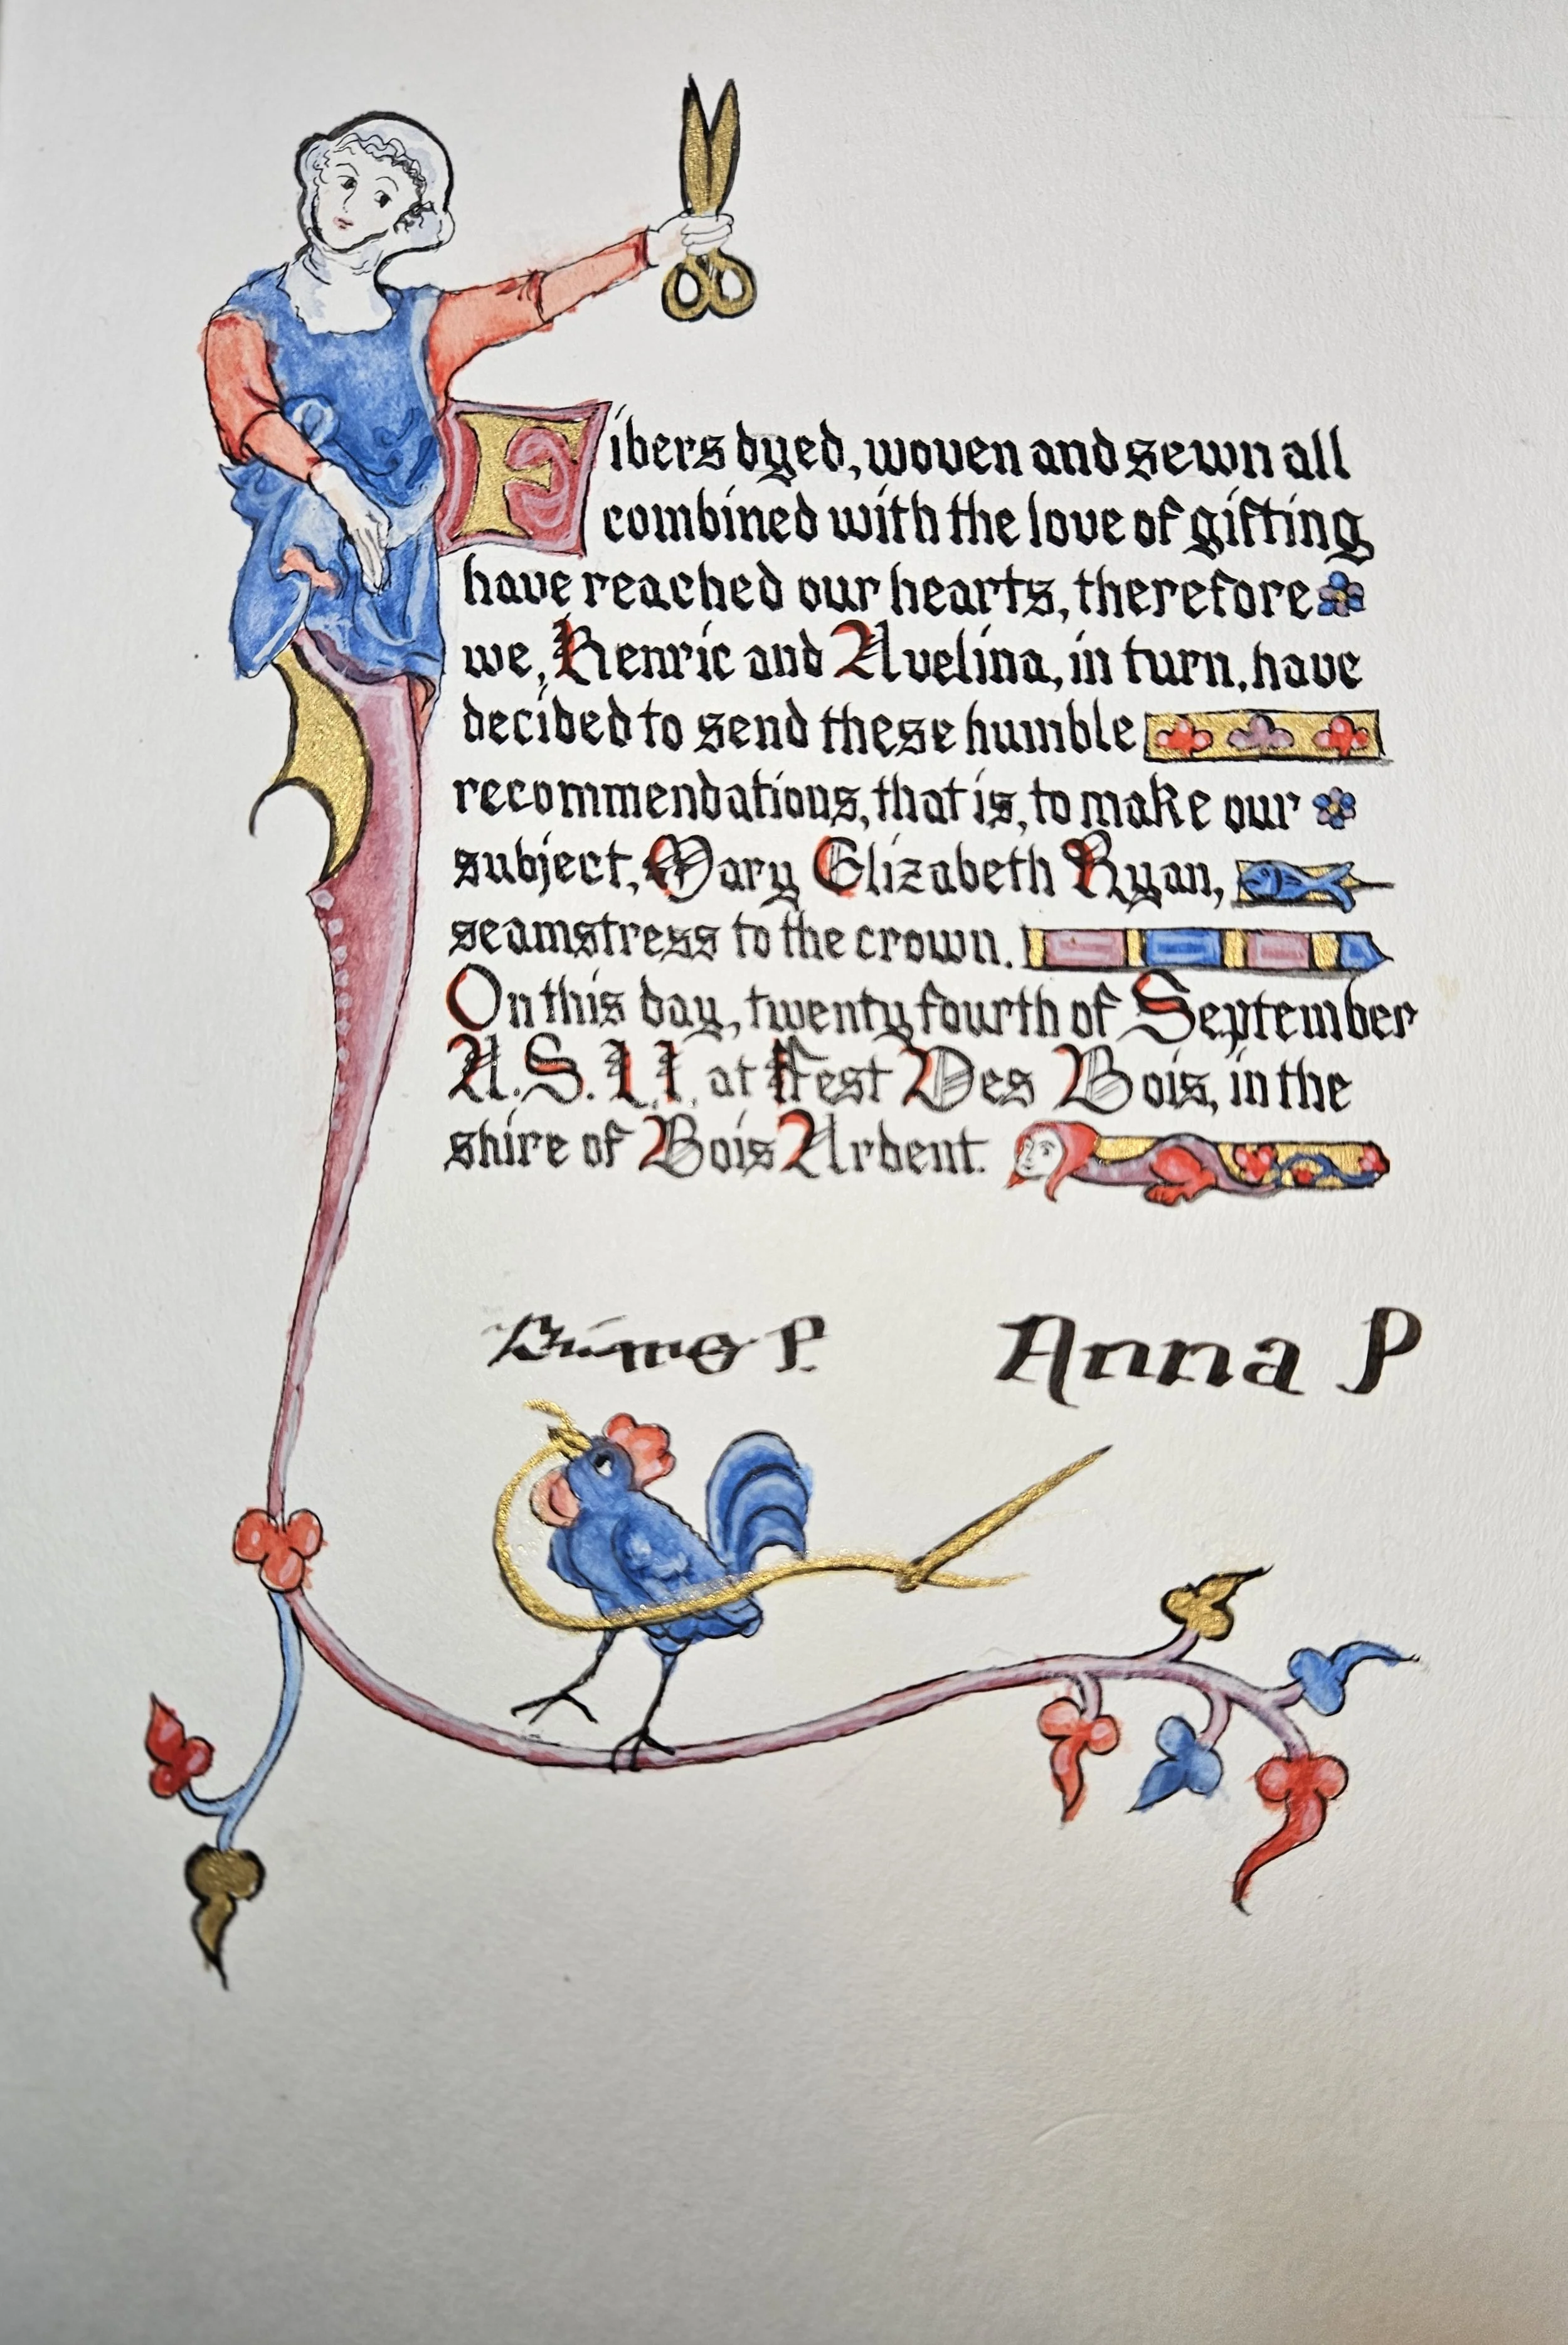 Fibers dyed, woven and sewn all
combined with the love of gifting
have reached our hearts, therefore
we, Henric and Avelina, in turn, have
decided to send these humble
recommendations, that is, to make our
subject, Mary Elizabeth Ryan,
seamstress to the crown.
On this day, twenty fourth of September
A.S. L I, at Fest Des Bois, in the
shire of Bois Ardent.
P.
Anna P